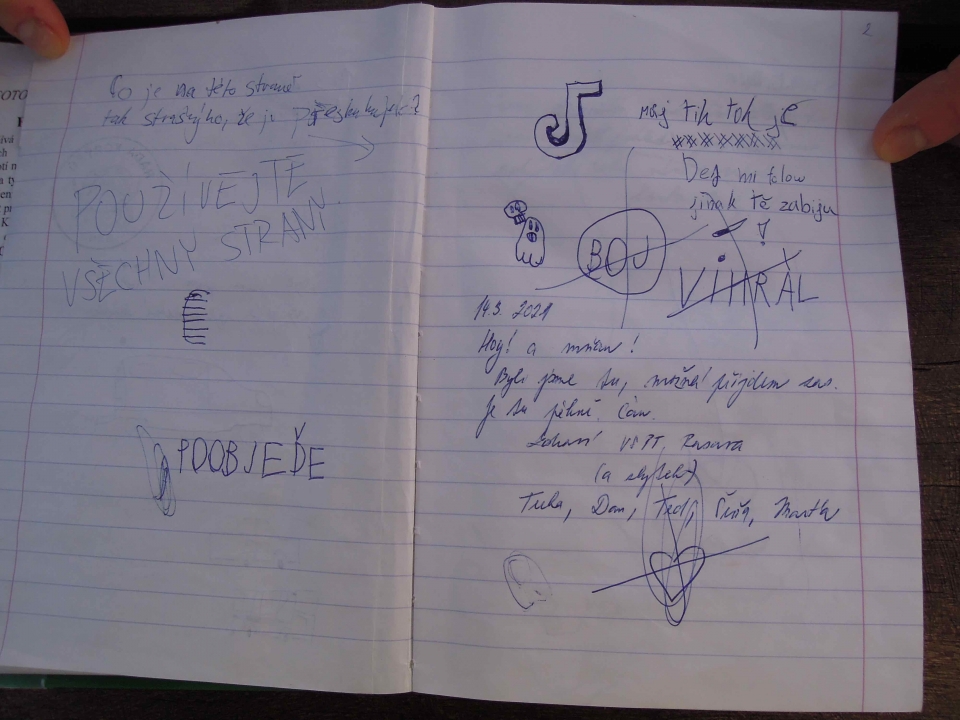 Co je na této straně
tak strašnýho, že ji přeskakujete?
POUŽÍVEJTE
VŠECHNY STRANI
POOBJEĎE
2
můj tik tok je
Dej mi folow
jinak tě zabiju
!
BOJ
VIHRÁL
14.3. 2021
Hoj! a
Byli jsme tu, možná přijdem zas.
Je tu pěkně. Čau.
VSPT.
(a zbytek)
Dan, Ted,